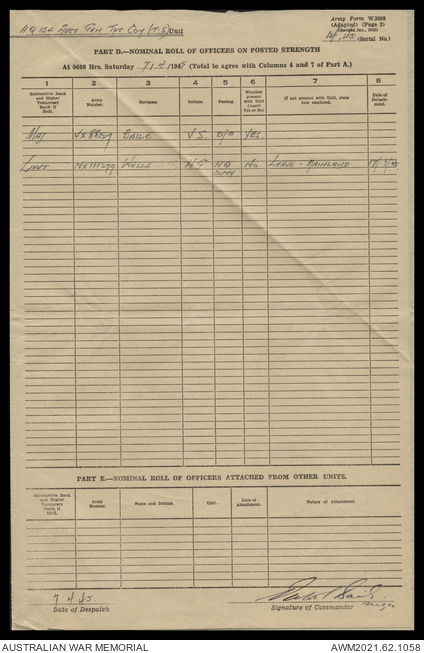 Army Form W.3008
(Adapted) (Page 2)
(Revised Jan., 1943)
HQ 152 Aust Gen Tpt Coy (T.S) Unit
(Serial No.)
PART D.—NOMINAL ROLL OF OFFICERS ON POSTED STRENGTH
At 0600 Hrs. Saturday 7/4/1945 (Total to agree with Columns 4 and 7 of Part A.)
1 2 3 4 5 6 7 8
Substantive Rank and Higher Temporary Rank if Held. Army Number. Surname. Initials. Posting. Whether present with Unit (Insert Yes or No) If not present with Unit, state how employed. Date of Detach-ment.
Maj BAILE J.S. O/C Yes
Lieut NX111279 WELLS H.G HQ DUTY No LEAVE - MAINLAND
PART E.—NOMINAL ROLL OF OFFICERS ATTACHED FROM OTHER UNITS.
Substantive Rank and Higher Temporary Rank, if Held. Army Number. Name and Initials. Unit. Date of Attachment. Nature of Attachment.
7.4.45.
Date of Despatch
Major
Signature of Commander
AUSTRALIAN WAR MEMORIAL
AWM2021.62.1058